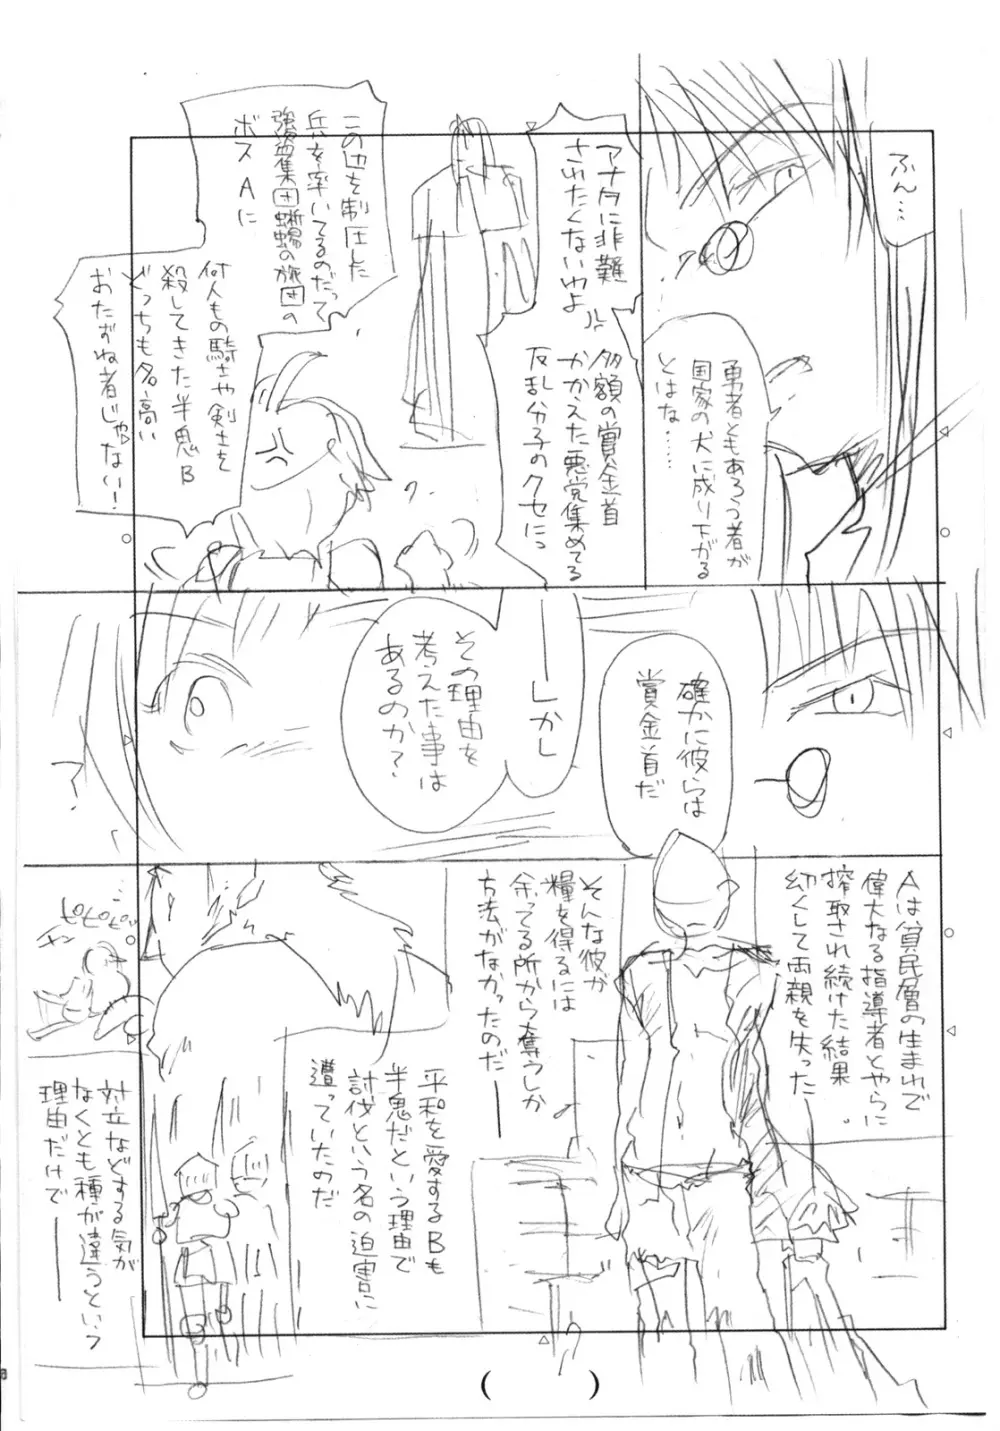 ふん…
勇者ともあろう者が
国家の犬に成り下がる
とはな……
アナタに非難
されたくないわよ
多額の賞金首
かかえた悪党集めてる
反乱分子のクセにっ
この辺を制圧した
兵を率いてるのだって
強盗集団蜥蜴の旅団の
ボスAに
何人もの騎士や剣士を
殺してきた半鬼B
どっちも名高い
おたずね者じゃない！
確かに彼らは
賞金首だ
―しかし
その理由を
考えた事は
あるのか？
？
Aは貧民層の生まれで
偉大なる指導者とやらに
搾取され続けた結果
幼くして両親を失った―
そんな彼が
糧を得るには
余ってる所から奪うしか
方法がなかったのだ―
平和を愛するBも
半鬼だという理由で
討伐という名の迫害に
遭っていたのだ
対立などする気が
なくとも種が違うという
理由だけで―
（　　）